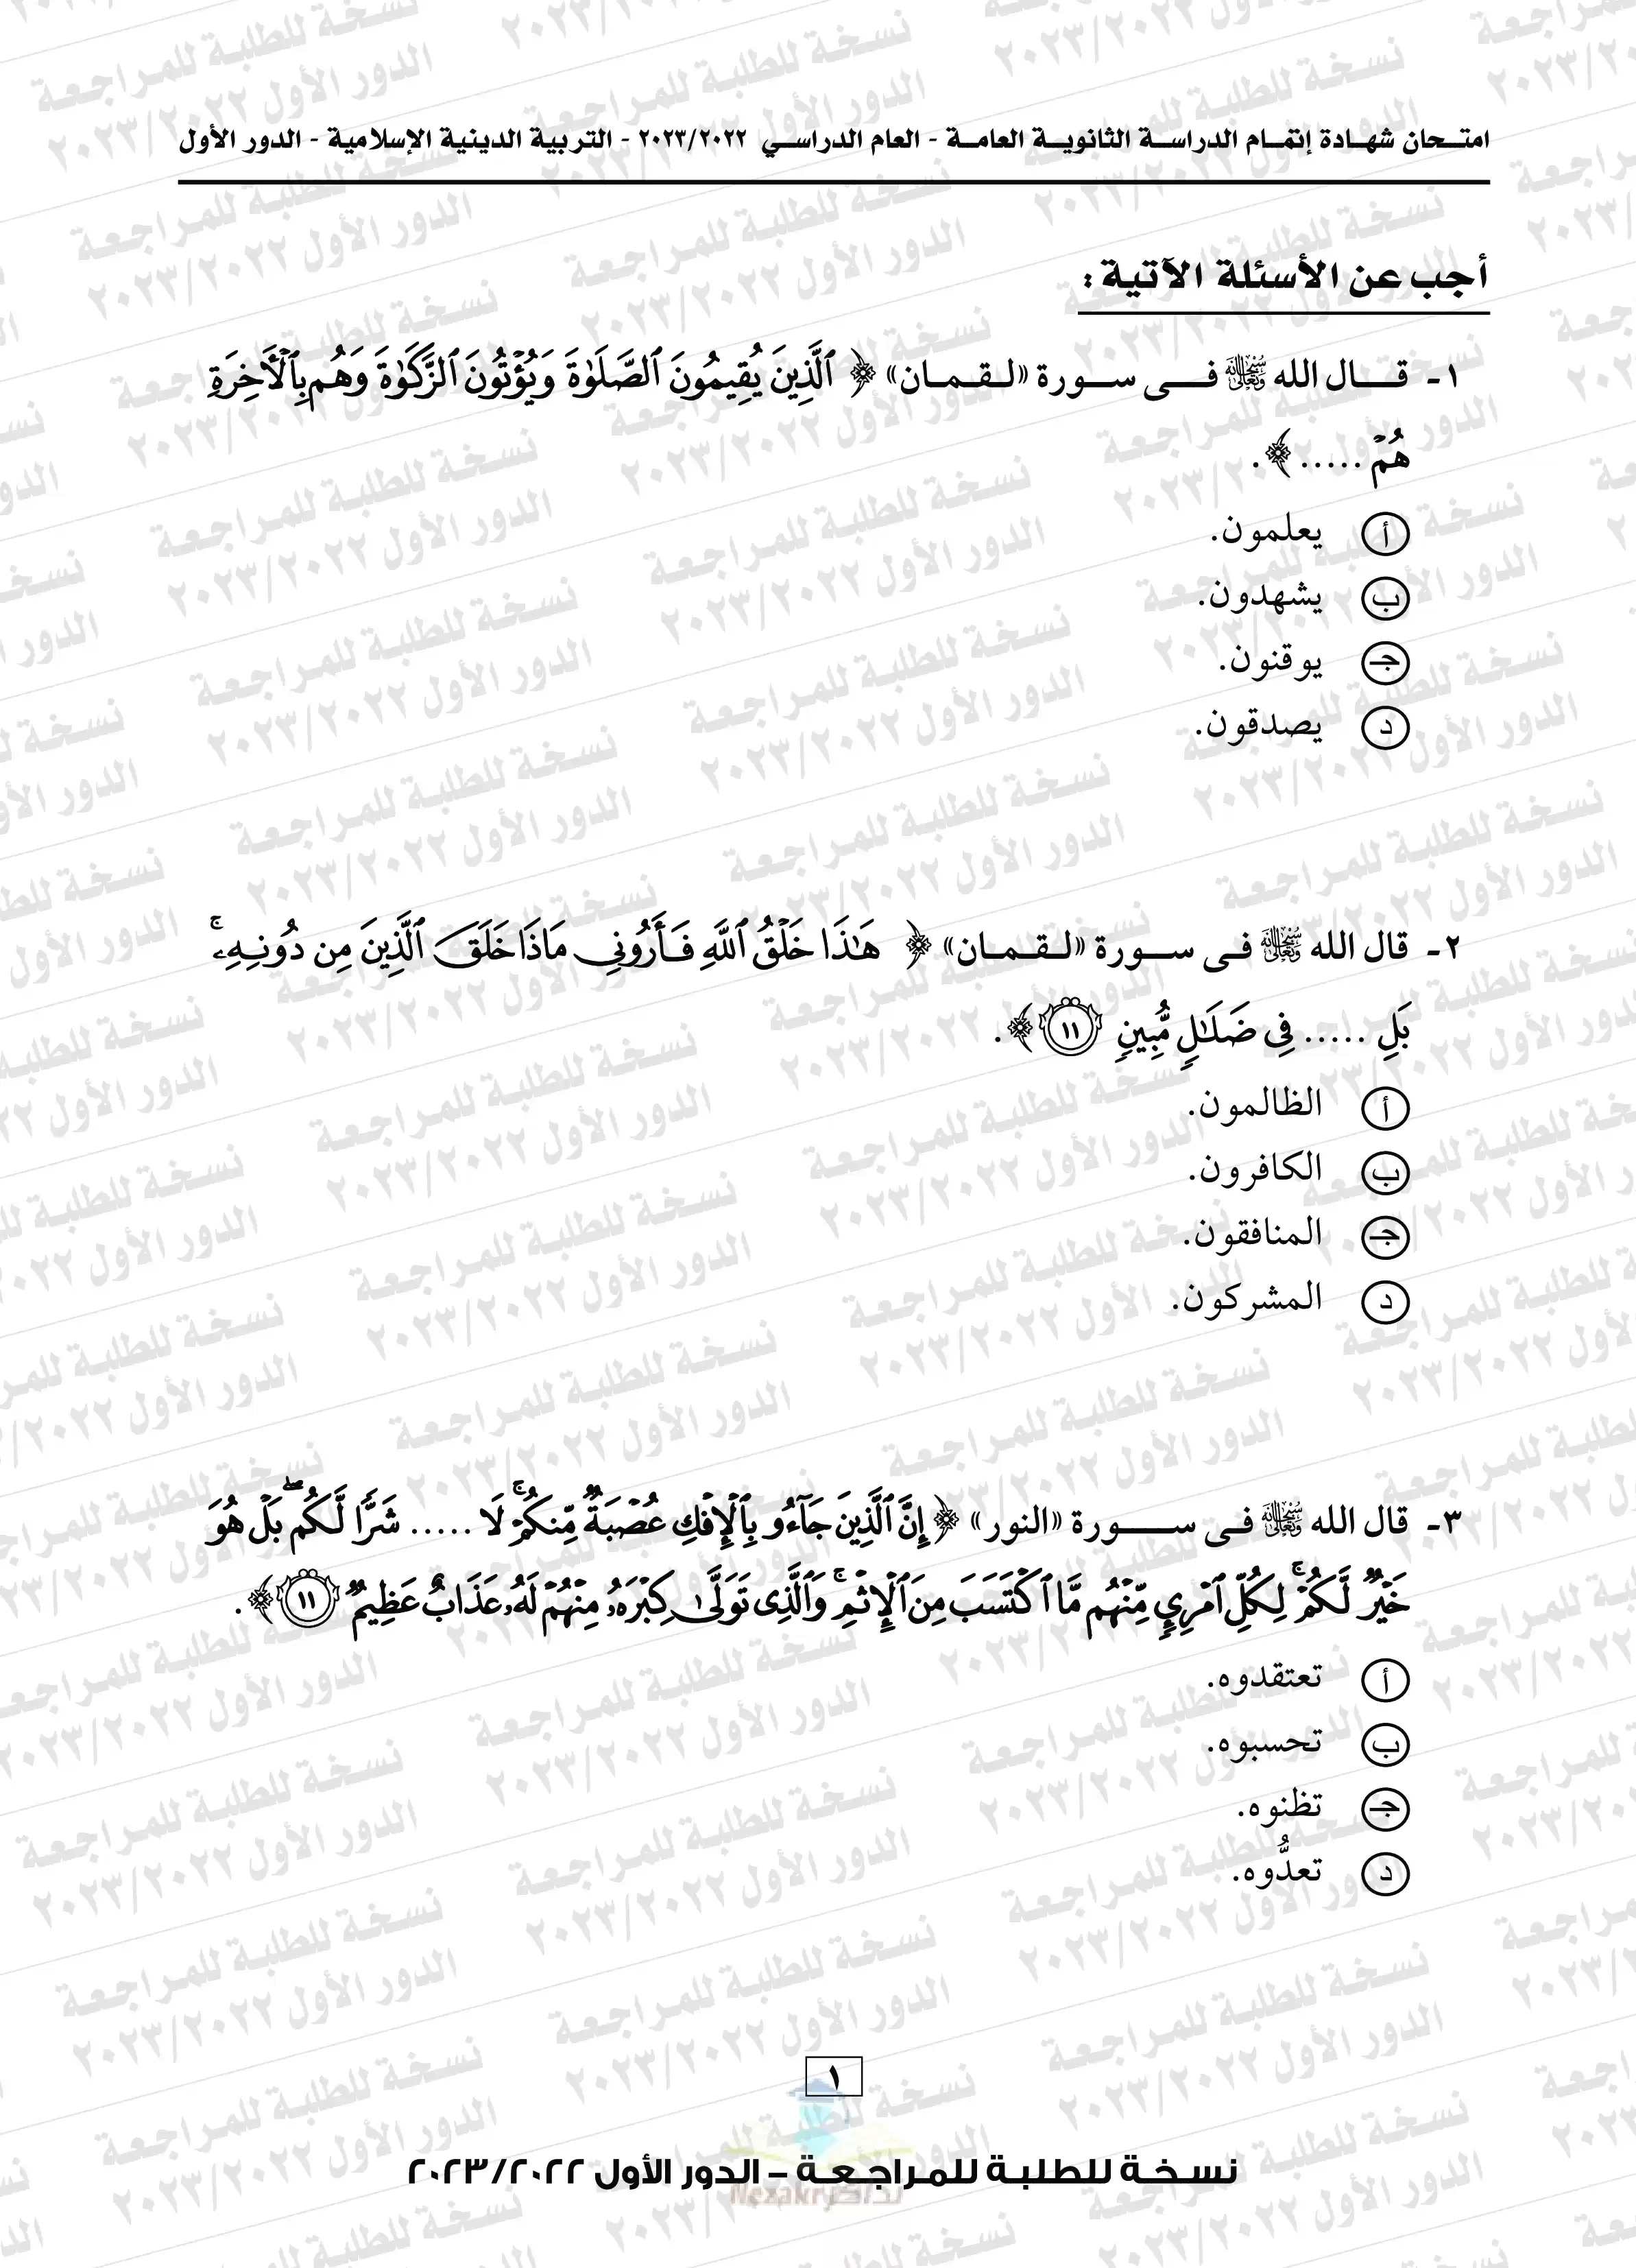 امتـــحان شهـــادة إتمـــام الدراســـة الثانويـــة العامـــة - العام الدراســـي ٢٠٢٣/٢٠٢٢ - التربية الدينية الإسلامية - الدور الأول
أجب عن الأسئلة الآتية :
١- قـــال الله ﷾ فـــى ســـورة «لـقـمـان» ﴿ ٱلَّذِينَ يُقِيمُونَ ٱلصَّلَوٰةَ وَيُؤْتُونَ ٱلزَّكَوٰةَ وَهُم بِٱلْأَخِرَةِ
هُمْ ..... ﴾ .
أ يعلمون.
ب يشهدون.
جـ يوقنون.
د يصدقون.
٢- قال الله ﷾ فـى ســورة «لـقـمـان» ﴿ هَٰذَا خَلْقُ ٱللَّهِ فَأَرُونِى مَاذَا خَلَقَ ٱلَّذِينَ مِن دُونِهِۦۚ
بَلِ ..... فِى ضَلَٰلٍ مُّبِينٍ ١١ ﴾ .
أ الظالمون.
ب الكافرون.
جـ المنافقون.
د المشركون.
٣- قال الله ﷾ فـى ســـورة «النور» ﴿ إِنَّ ٱلَّذِينَ جَآءُو بِٱلْإِفْكِ عُصْبَةٌ مِّنكُمْۚ لَا ..... شَرًّا لَّكُمۖ بَلْ هُوَ
خَيْرٌ لَّكُمْۚ لِكُلِّ ٱمْرِئٍ مِّنْهُم مَّا ٱكْتَسَبَ مِنَ ٱلْإِثْمِۚ وَٱلَّذِى تَوَلَّىٰ كِبْرَهُۥ مِنْهُمْ لَهُۥ عَذَابٌ عَظِيمٌ ١١ ﴾ .
أ تعتقدوه.
ب تحسبوه.
جـ تظنوه.
د تعدُّوه.
١
نسـخـة للطلبـة للمـراجـعـة – الدور الأول ٢٠٢٣/٢٠٢٢